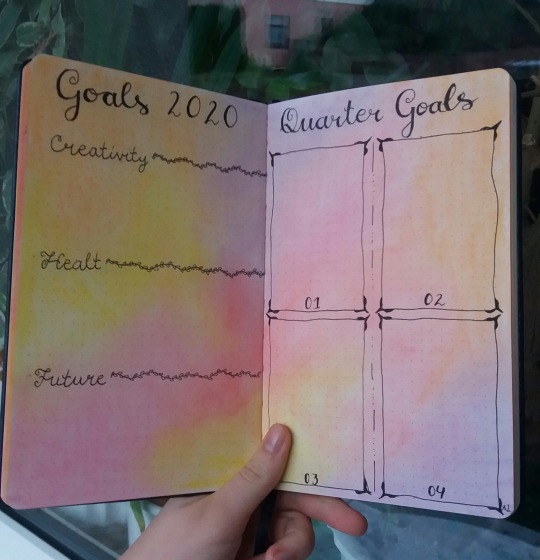 Goals 2020
Creativity
Healt
Future
Quarter Goals
01
02
03
04